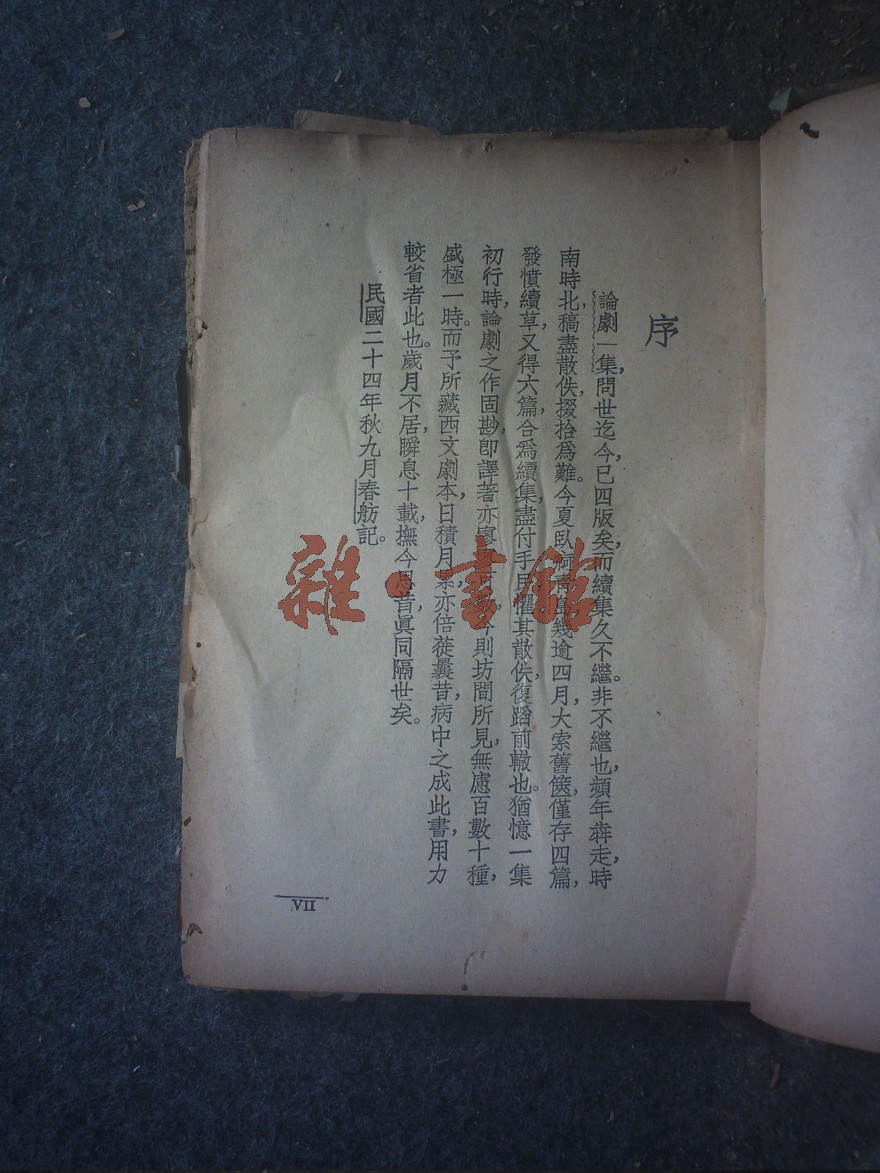 序
論劇一集，問世迄今，已四版矣，而續集久不繼。非不繼也，頻年犇走，時
南時北，稿盡散佚，掇拾爲難。今夏臥疴青島，幾逾四月，大索舊篋，僅存四篇，
發憤續草，又得六篇，合爲續集，盡付手民，懼其散佚，復蹈前轍也。猶憶一集
初行時，論劇之作固尠，卽譯著亦寥，今則坊間所見，無慮百數十種，
盛極一時。而予所藏西文劇本，日積月累，亦倍蓰曩昔，病中之成此書，用力
較省者此也。歲月不居，瞬息十載，撫今思昔，眞同隔世矣。
民國二十四年秋九月春舫記。
VII
雜·書館